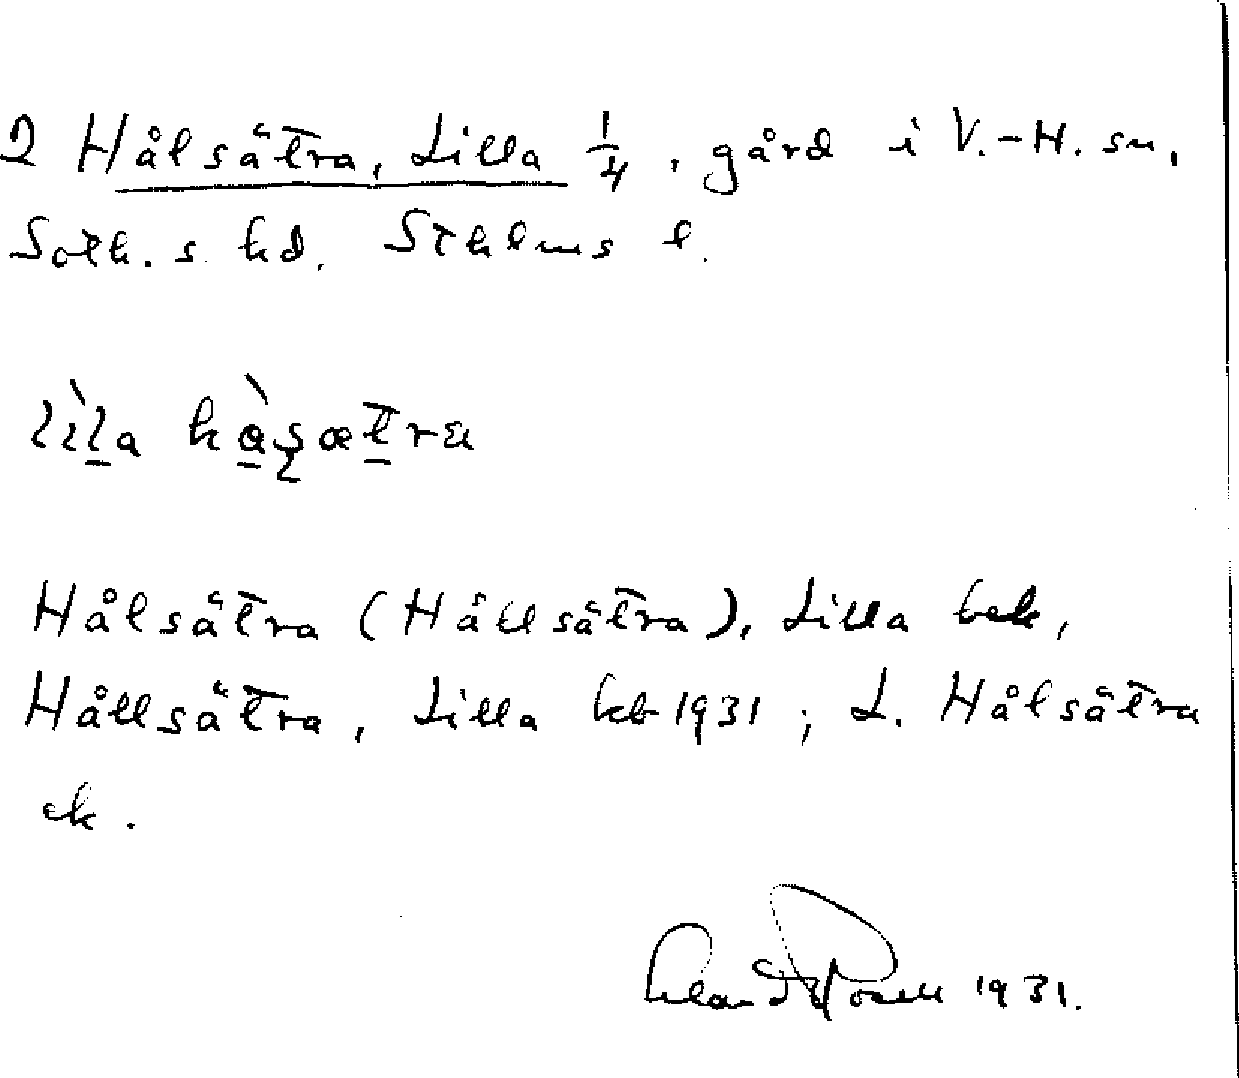 2 Hålsätra, Lilla 1/4, gård i V.-H. sn,
Soth. s hd. Sthlms l.
lìla hàsætra
Hålsätra (Hållsätra), Lilla bek,
Hållsätra, Lilla kb 1931; L. Hålsätra
ek.
1931.